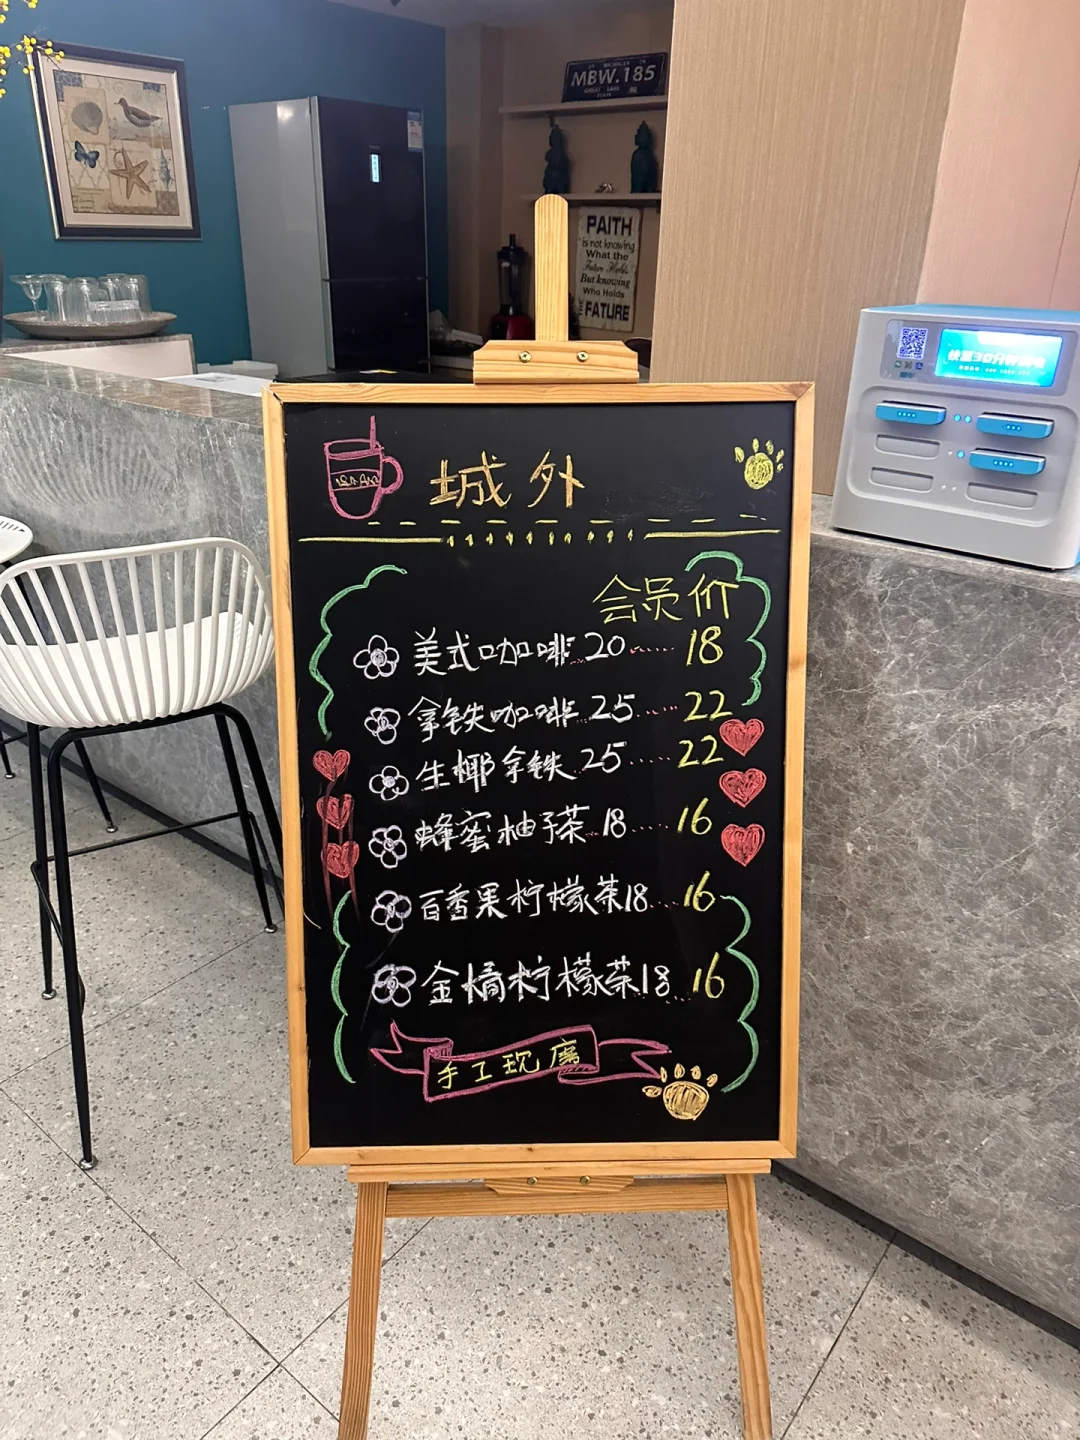 MBW.185
FAITH
is not knowing
What the
Future Holds
But knowing
Who Holds
THE FATURE
城外
会员价
美式咖啡 20 …… 18
拿铁咖啡 25 …… 22
生椰拿铁 25 …… 22
蜂蜜柚子茶 18 …… 16
百香果柠檬茶 18 …… 16
金橘柠檬茶 18 …… 16
手工现磨